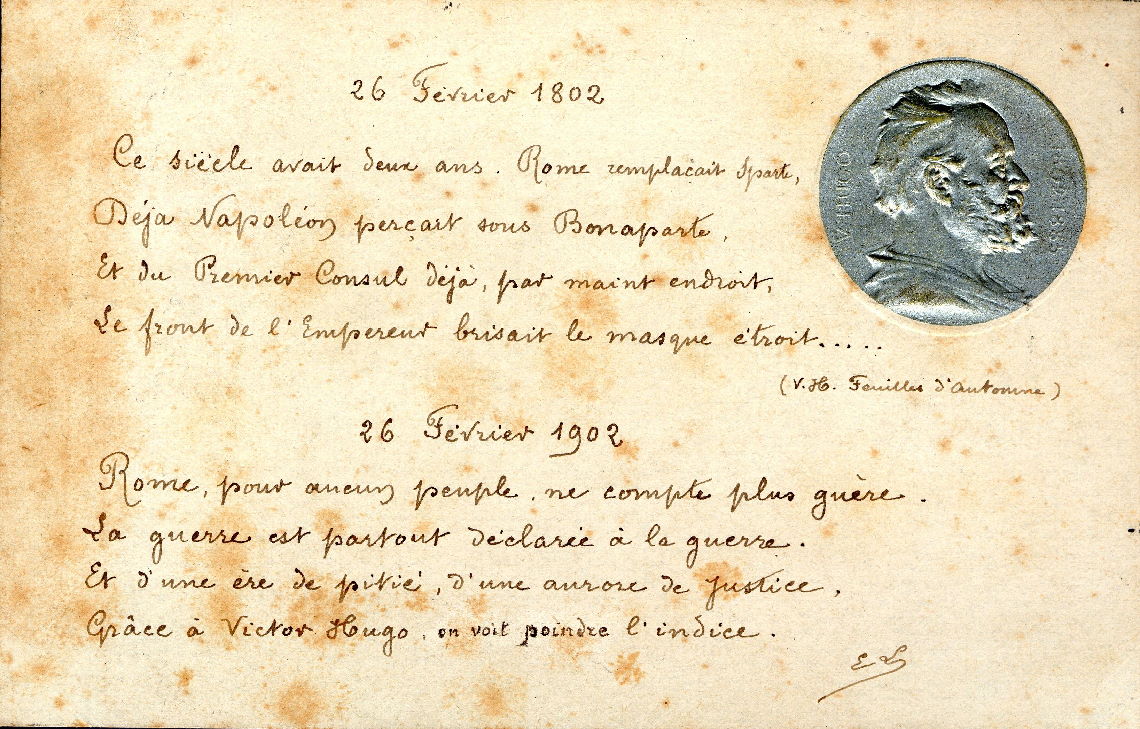 26 Février 1802
Ce siècle avait deux ans. Rome remplaçait Sparte,
Déja Napoléon perçait sous Bonaparte,
Et du Premier Consul déjà, par maint endroit,
Le front de l'Empereur brisait le masque étroit.....
(V. H. Feuilles d'Automne)
26 Février 1902
Rome, pour aucun peuple, ne compte plus guère.
La guerre est partout déclarée à la guerre.
Et d'une ère de pitié, d'une aurore de Justice,
Grâce à Victor Hugo, on voit poindre l'indice.
E L
V. HUGO